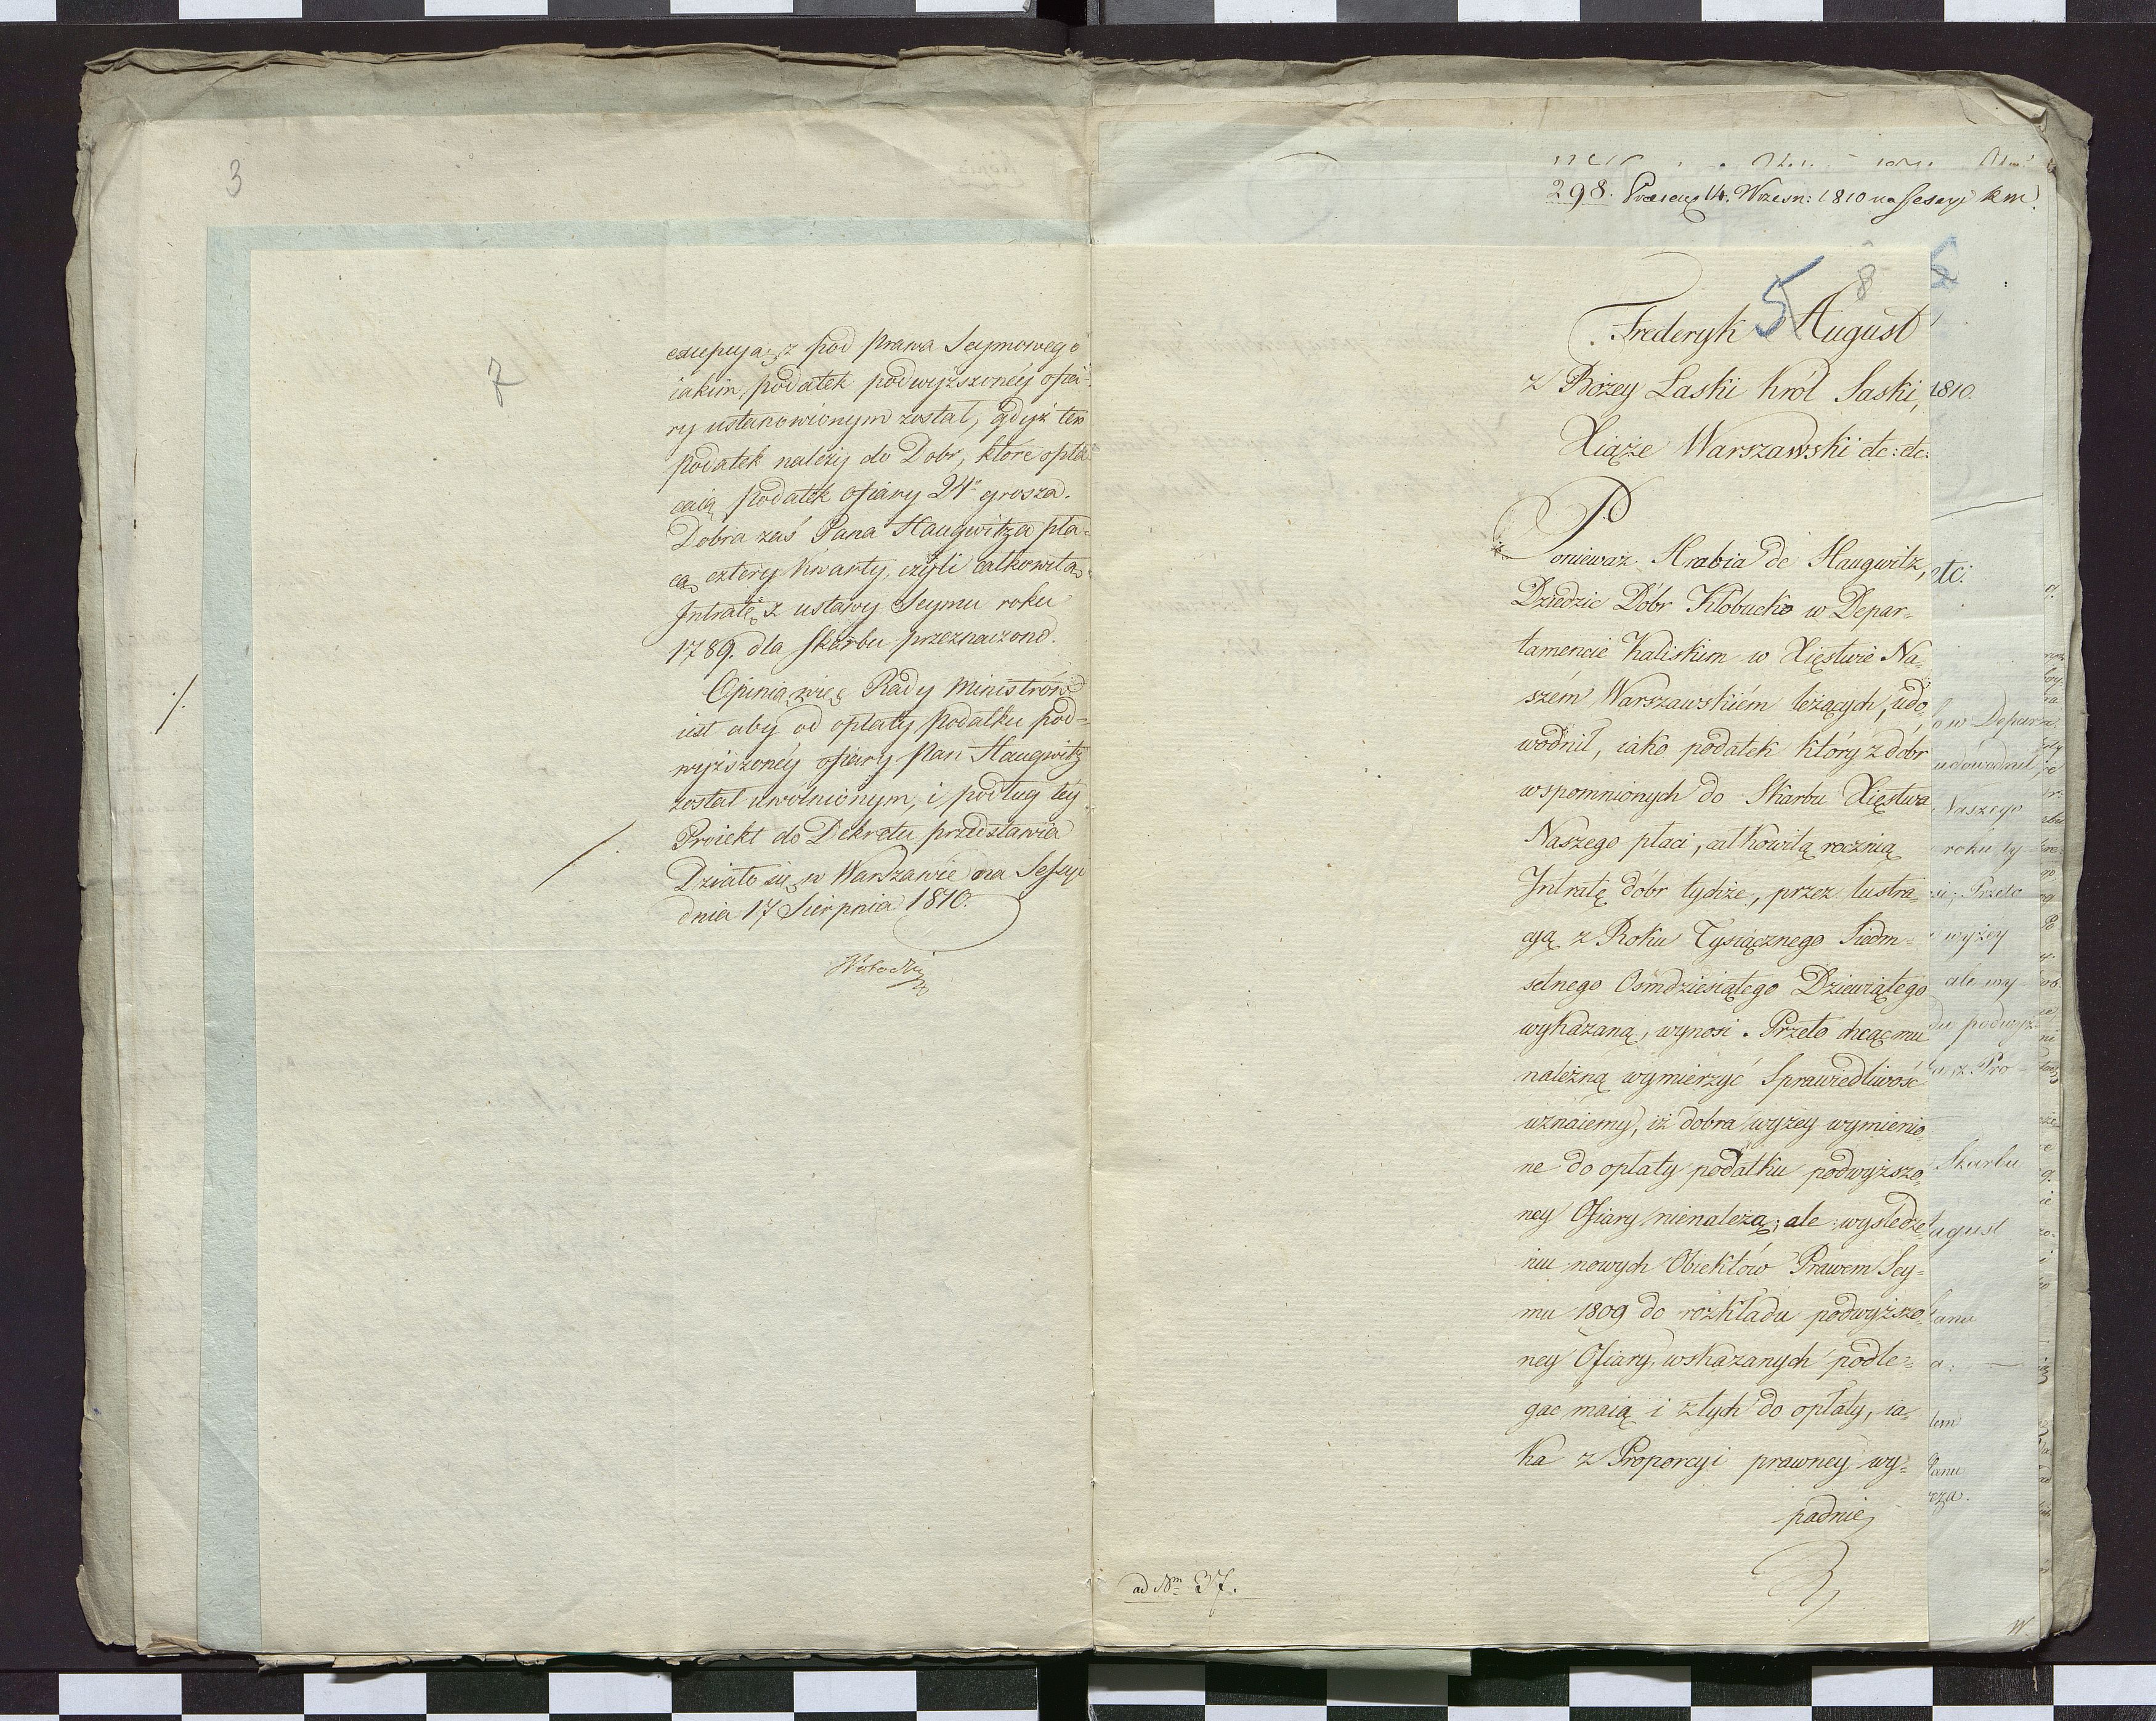 3
7
exupują z pod prawa Seymowego
iakim, podatek podwyższonéy ofia-
ry ustanowionym został, gdyż ten
podatek należy do Dobr, które opła-
caią podatek ofiary 24º grosza.
Dobra zaś Pana Haugwitza pła-
cą cztery kwarty, czyli całkowitą
Intratę z ustawy Seymu roku
1789. dla skarbu przeznaczoną.
Opinią więc Rady Ministrów
iest aby od opłaty podatku pod-
wyższonéy ofiary Pan Haugwitz
został uwolnionym, i podług téy
Proiekt do Dekretu przedstawia
Działo się w Warszawie na Sessyi
dnia 17 Sierpnia 1810.
298. 14. Wrześn: 1810 na Sesayi
5 8
Frederyk August
z Bożey Laski Król Saski,
Xiąże Warszawski etc: etc:
Ponieważ Hrabia de Haugwitz,
Dziedzic Dóbr Kłobucko w Depar-
tamencie Kaliskim w Xięstwie Na-
szém Warszawskiém leżących, udo-
wodnił, iako podatek który z dobr
wspomnionych do Skarbu Xięstwa
Naszego płaci, całkowitą roczną
Intratę dóbr tychże, przez lustra-
cyą z Roku Tysiącznego Siedm-
setnego Osmdziesiątego Dziewiątego
wykazaną, wynosi. Przeto chcąc mu
należną wymierzyć Sprawiedliwość
uznaiemy, iż dobra wyżey wymienio-
ne do opłaty podatku podwyższo-
ney Ofiary nienależą; ale wyśledze-
niu nowych Obiektów Prawem Sey-
mu 1809 do rozkładu podwyższo-
ney Ofiary, wskazanych podle-
gać maią i z tych do opłaty, ia-
ka z Proporcyi prawney wy-
padnie,
ad Nm 37.
1810.
etc:
w Depar
udowodnił
Naszego
roku ty
Przeto
wyżey
ale wy
podwyż
z Pro-
Skarbu
ugust